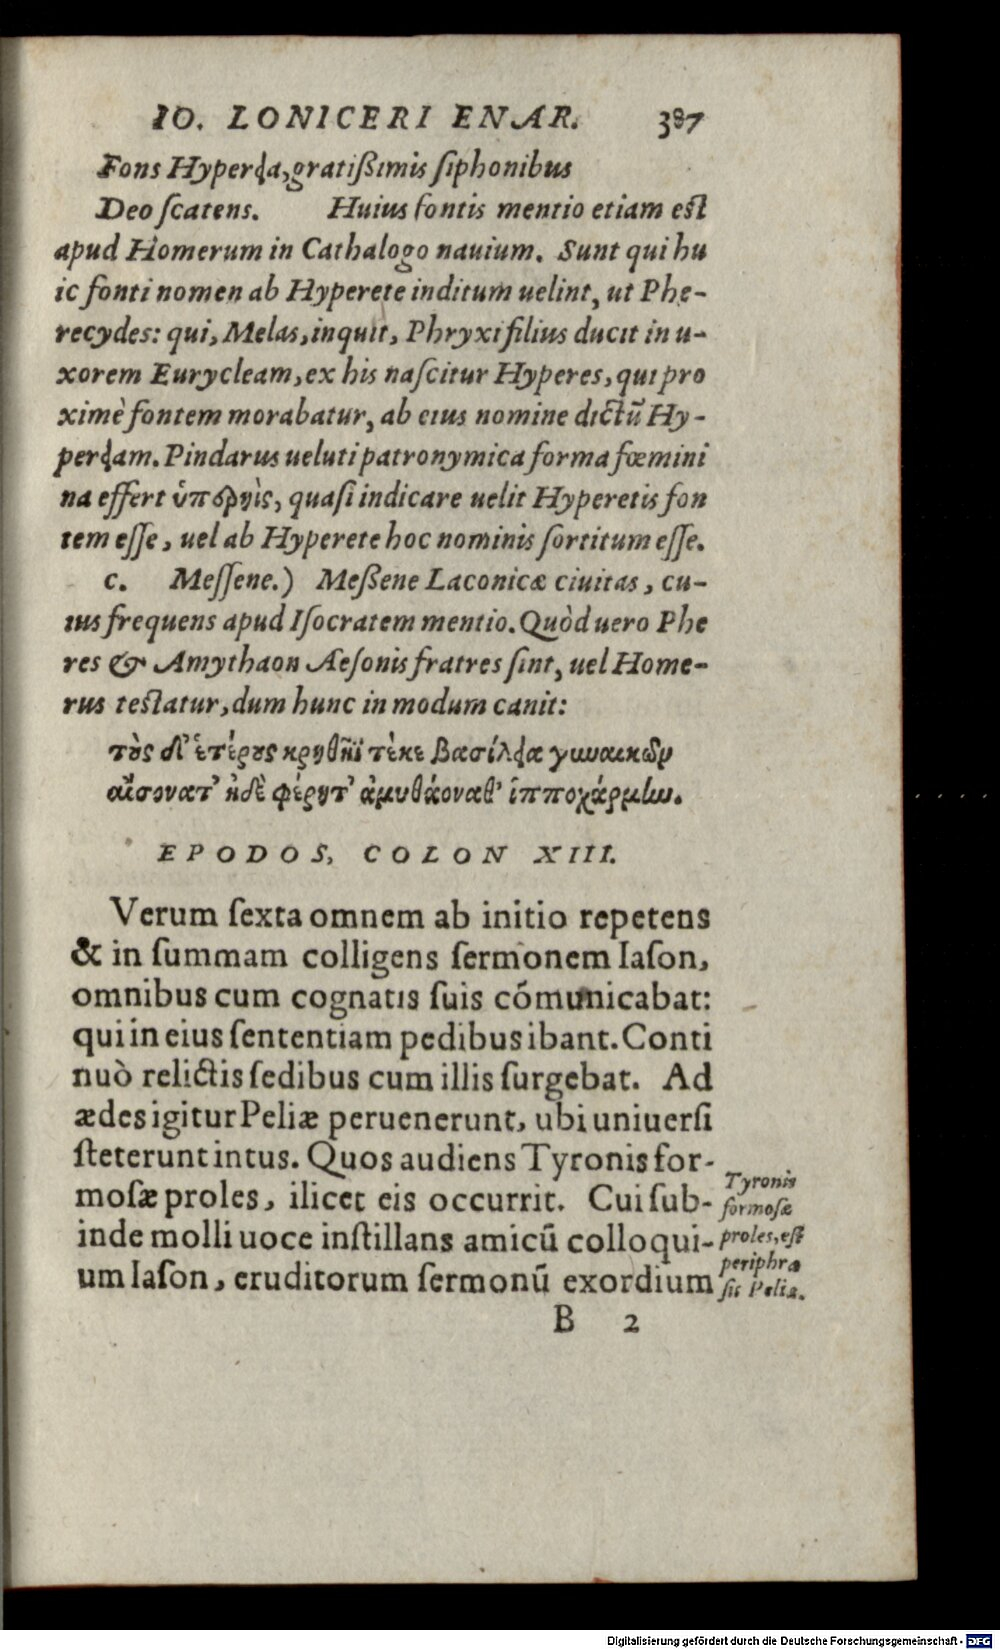 IO. LONICERI ENAR. 387
Fons Hypereia, gratißimis ſiphonibus
Deo ſcatens. Huius fontis mentio etiam eſt
apud Homerum in Cathalogo nauium. Sunt qui hu
ic fonti nomen ab Hyperete inditum uelint, ut Phe-
recydes: qui, Melas, inquit, Phryxi filius ducit in u-
xorem Eurycleam, ex his naſcitur Hyperes, qui pro
ximè fontem morabatur, ab eius nomine dictũ Hy-
pereiam. Pindarus ueluti patronymica forma fœmini
na effert ὑπερηὶς, quaſi indicare uelit Hyperetis fon
tem eſſe, uel ab Hyperete hoc nominis ſortitum eſſe.
c. Meſſene.) Meßene Laconicæ ciuitas, cu-
ius frequens apud Iſocratem mentio. Quòd uero Phe
res & Amythaon Aeſonis fratres ſint, uel Home-
rus teſtatur, dum hunc in modum canit:
τοὺς δ' ἑτέρους κρηθῆϊ τέκε βασίλεια γυναικῶν
αἴσονατ' ἠδὲ φέρητ' ἀμυθάοναθ' ἱπποχάρμην.
EPODOS, COLON XIII.
Verum ſexta omnem ab initio repetens
& in ſummam colligens ſermonem Iaſon,
omnibus cum cognatis ſuis cómunicabat:
qui in eius ſententiam pedibus ibant. Conti
nuò relictis ſedibus cum illis ſurgebat. Ad
ædes igitur Peliæ peruenerunt, ubi uniuerſi
ſteterunt intus. Quos audiens Tyronis for-
moſæ proles, ilicet eis occurrit. Cui ſub-
inde molli uoce inſtillans amicũ colloqui-
um Iaſon, eruditorum ſermonũ exordium
Tyronis
formoſæ
proles, eſt
periphra
ſis Peliæ.
B 2
Digitalisierung gefördert durch die Deutsche Forschungsgemeinschaft - DFG